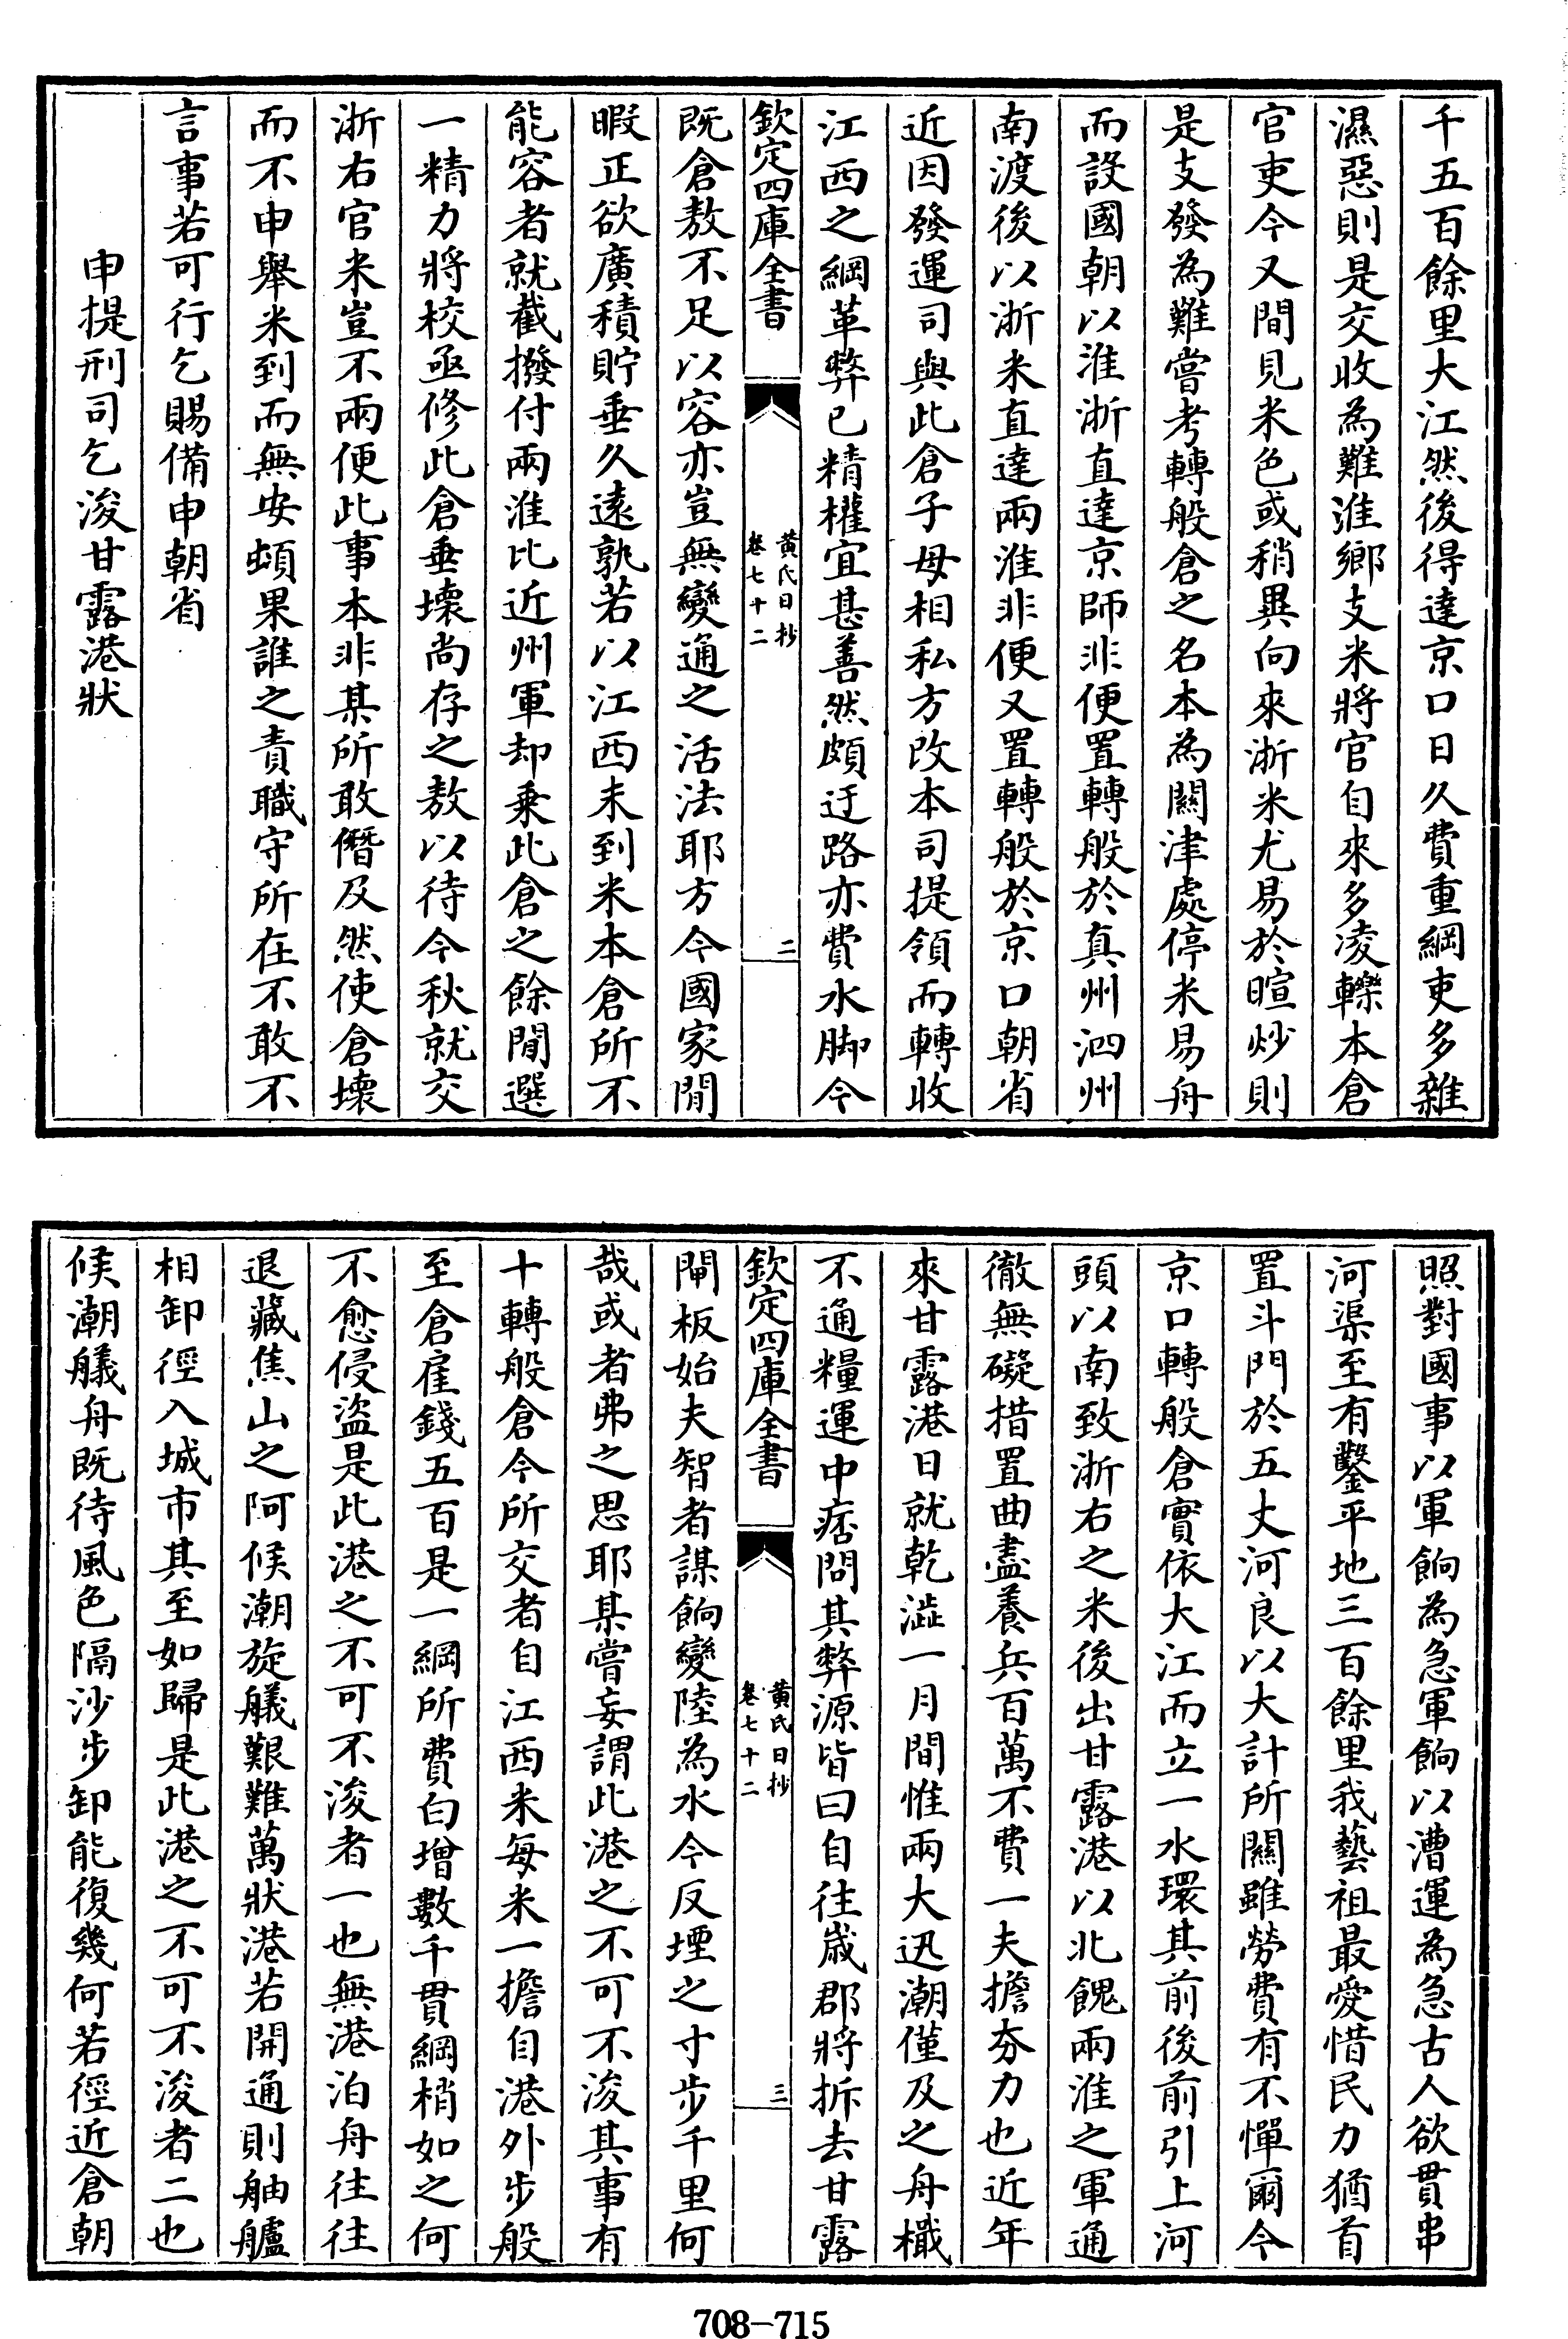 千五百餘里大江然後得達京口日久費重綱吏多雜
濕惡則是交收為難淮鄉支米將官自來多凌轢本倉
官吏今又間見米色或稍異向來浙米尤易於暄炒則
是支發為難嘗考轉般倉之名本為闗津處停米易舟
而設國朝以淮浙直達京師非便置轉般於真州泗州
南渡後以浙米直達兩淮非便又置轉般於京口朝省
近因發運司與此倉子母相私方改本司提領而轉收
江西之綱革弊已精權宜甚善然頗迂路亦費水脚今
欽定四庫全書
黃氏日抄
卷七十二
二
既倉敖不足以容亦豈無變通之活法耶方今國家閒
暇正欲廣積貯垂久遠孰若以江西未到米本倉所不
能容者就截撥付兩淮比近州軍却乗此倉之餘閒選
一精力將校亟修此倉垂壞尚存之敖以待今秋就交
浙右官米豈不兩便此事本非某所敢僭及然使倉壞
而不申舉米到而無安頓果誰之責職守所在不敢不
言事若可行乞賜備申朝省
申提刑司乞浚甘露港狀
照對國事以軍餉為急軍餉以漕運為急古人欲貫串
河渠至有鑿平地三百餘里我藝祖最愛惜民力猶首
置斗門於五丈河良以大計所闗雖勞費有不憚爾今
京口轉般倉實依大江而立一水環其前後前引上河
頭以南致浙右之米後出甘露港以北餽兩淮之軍通
徹無礙措置曲盡養兵百萬不費一夫擔夯力也近年
來甘露港日就乾澁一月間惟兩大迅潮僅及之舟檝
不通糧運中痞問其弊源皆曰自往嵗郡將拆去甘露
欽定四庫全書
黃氏日抄
卷七十二
三
閘板始夫智者謀餉變陸為水今反堙之寸步千里何
哉或者弗之思耶某嘗妄謂此港之不可不浚其事有
十轉般倉今所交者自江西米每米一擔自港外步般
至倉雇錢五百是一綱所費白增數千貫綱梢如之何
不愈侵盜是此港之不可不浚者一也無港泊舟往往
退藏焦山之阿候潮旋艤艱難萬狀港若開通則舳艫
相卸徑入城市其至如歸是此港之不可不浚者二也
候潮艤舟既待風色隔沙步卸能復幾何若徑近倉朝
708-715